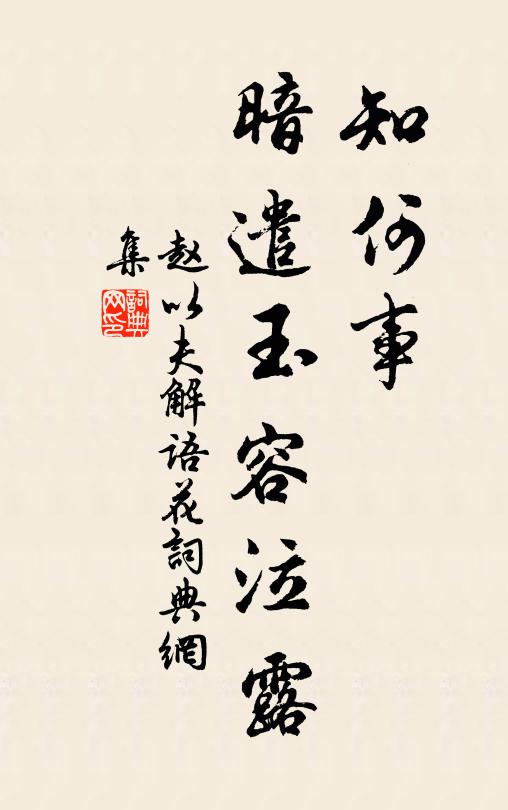 知何事
暗遣玉容泣露
赵以夫解语花詞典網
集
詞典网印